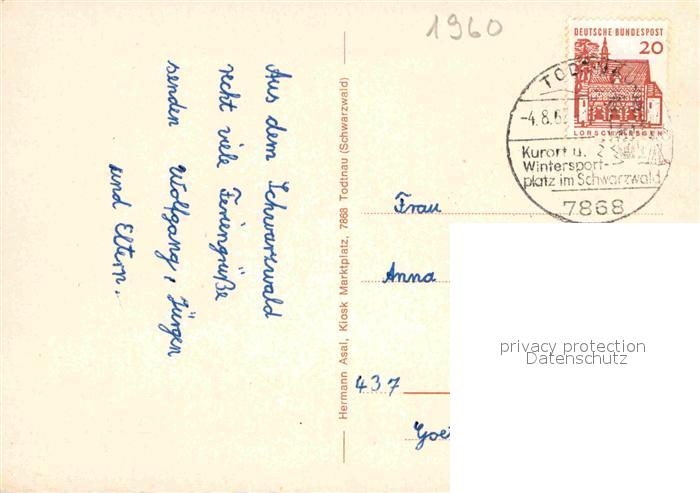 1960
DEUTSCHE BUNDESPOST
20
LORSCH/HESSEN
-4.8.6
Kurort u.
Wintersport-
platz im Schwarzwald
7868
Aus dem Schwarzwald
recht viele Feriengrüße
senden Wolfgang, Jürgen
und Eltern.
Hermann Asal, Kiosk Marktplatz, 7868 Todtnau (Schwarzwald)
Frau
Anna
437
privacy protection
Datenschutz